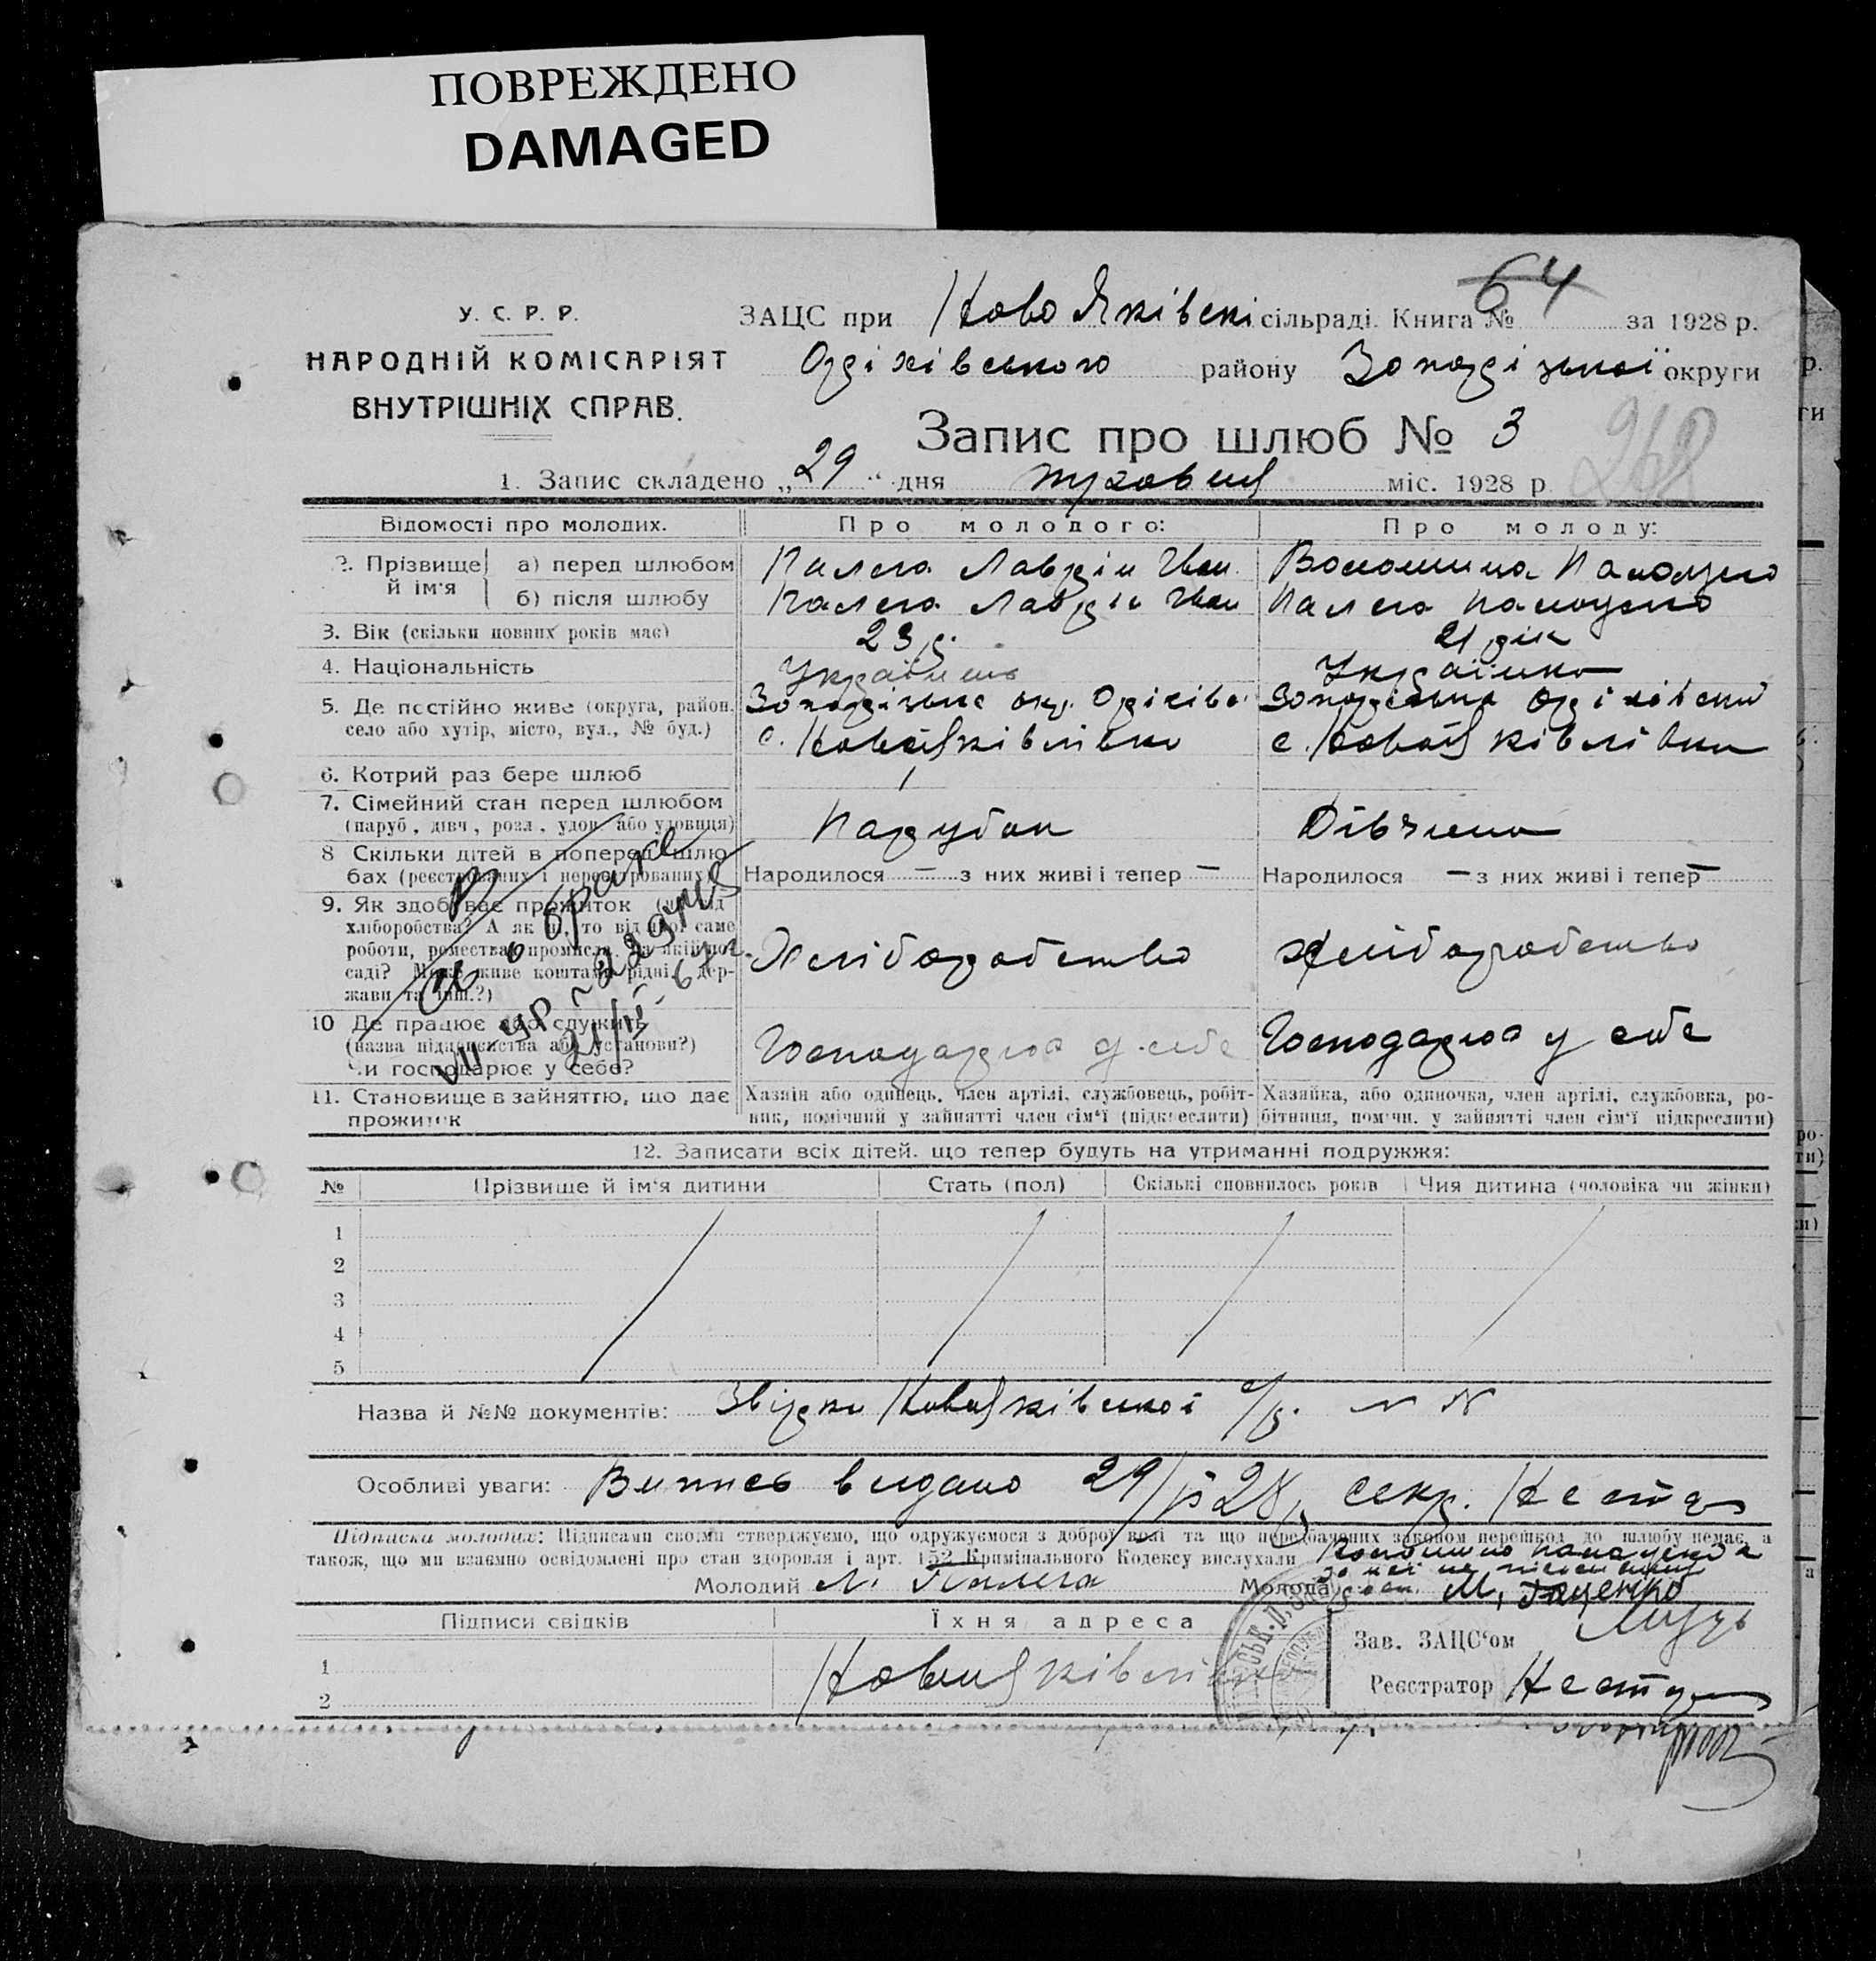 ПОВРЕЖДЕНО
DAMAGED
У. С. Р. Р.
НАРОДНІЙ КОМІСАРІЯТ
ВНУТРІШНІХ СПРАВ.
64
ЗАЦС при Ново Яківскі сільраді. Книга № за 1928 р.
Оріхівського району Запорізької округи
Запис про шлюб № 3
1. Запис складено „29“ дня травня міс. 1928 р
Відомості про молодих. Про молодого: Про молоду:
2. Прізвище й ім'я а) перед шлюбом Калега Лаврін Іван. Волошина
б) після шлюбу Калега Лаврін Іван Калега
3. Вік (скільки повних років має) 23 р. 21 рік
4. Національність Українець Українка
5. Де постійно живе (округа, район, Запорізька окр. Оріхівс Запорізька Оріхівский
село або хутір, місто, вул., № буд.) с. НовоЯківлівка с. НовоЯківлівка
6. Котрий раз бере шлюб 1
7. Сімейний стан перед шлюбом
(паруб, дівч, розл, удов або удовиця) Парубок Дівчина
8 Скільки дітей в поперед шлю-
бах (реєстрованих і нереєстрованих) Народилося — з них живі і тепер — Народилося — з них живі і тепер —
9. Як здобуває прожиток
хліборобства? А як ні, то від якої саме
роботи, ремества, промисла, на якій по-
саді? Може живе коштами рідні, дер-
жави та інш.?) Хліборобство Хліборобство
10 Де працює або служить
(назва підприємства або установи?)
чи господарює у себе? Господарює у себе Господарює у себе
11. Становище в зайняттю, що дає
прожиток
Хазяїн або одинець, член артілі, службовець, робіт-
ник, помічний у зайнятті член сім'ї (підкреслити)
Хазяйка, або одиночка, член артілі, службовка, ро-
бітниця, помічн. у зайнятті член сім'ї підкреслити)
12. Записати всіх дітей, що тепер будуть на утриманні подружжя:
№ Прізвище й ім'я дитини Стать (пол) Скількі сповнилось років Чия дитина (чоловіка чи жінки)
1
2
3
4
5
Назва й №№ документів: Звідки НовоЯківської с/р.
Особливі уваги: Випись видано 29/V 28 р секр.
Підписки молодих: Підписами своїми стверджуємо, що одружуємося з доброї волі та що передбачених законом перешкод до шлюбу немає, а
також, що ми взаємно освідомлені про стан здоровля і арт. 152 Кримінального Кодексу вислухали
Молодий Л. Калега Молода М. Яценко
Підписи свідків Їхня адреса Зав. ЗАЦС'ом
1 НовоЯківлівка
2 Реєстратор